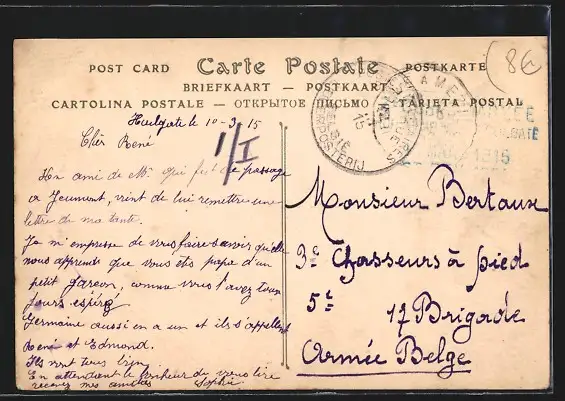 POST CARD Carte Postale POSTKARTE
BRIEFKAART — POSTKAART
CARTOLINA POSTALE — ОТКРЫТОЕ ПИСЬМО — TARJETA POSTAL
8€
Hulgate le 10-3 15
1/I
Chèr René
Un ami de Mr qui fut de passage
a Jeumont, vient de lui remettre une
lettre de ma tante.
Je m'empresse de vous faire savoir qu'elle
nous apprends que vous êtes papa d'un
petit garçon, comme vous l'avez tou
jours espéré
Germaine aussi en a un et ils s'appellent
René et Edmond.
Ils vont tous bien
En attendant le bonheur de vous lire
recevez mes amitiés Sophie
Monsieur Bertaux
3e Chasseurs à pied
5e 17 Brigade
Armée Belge
POSTERIJ
15
1915